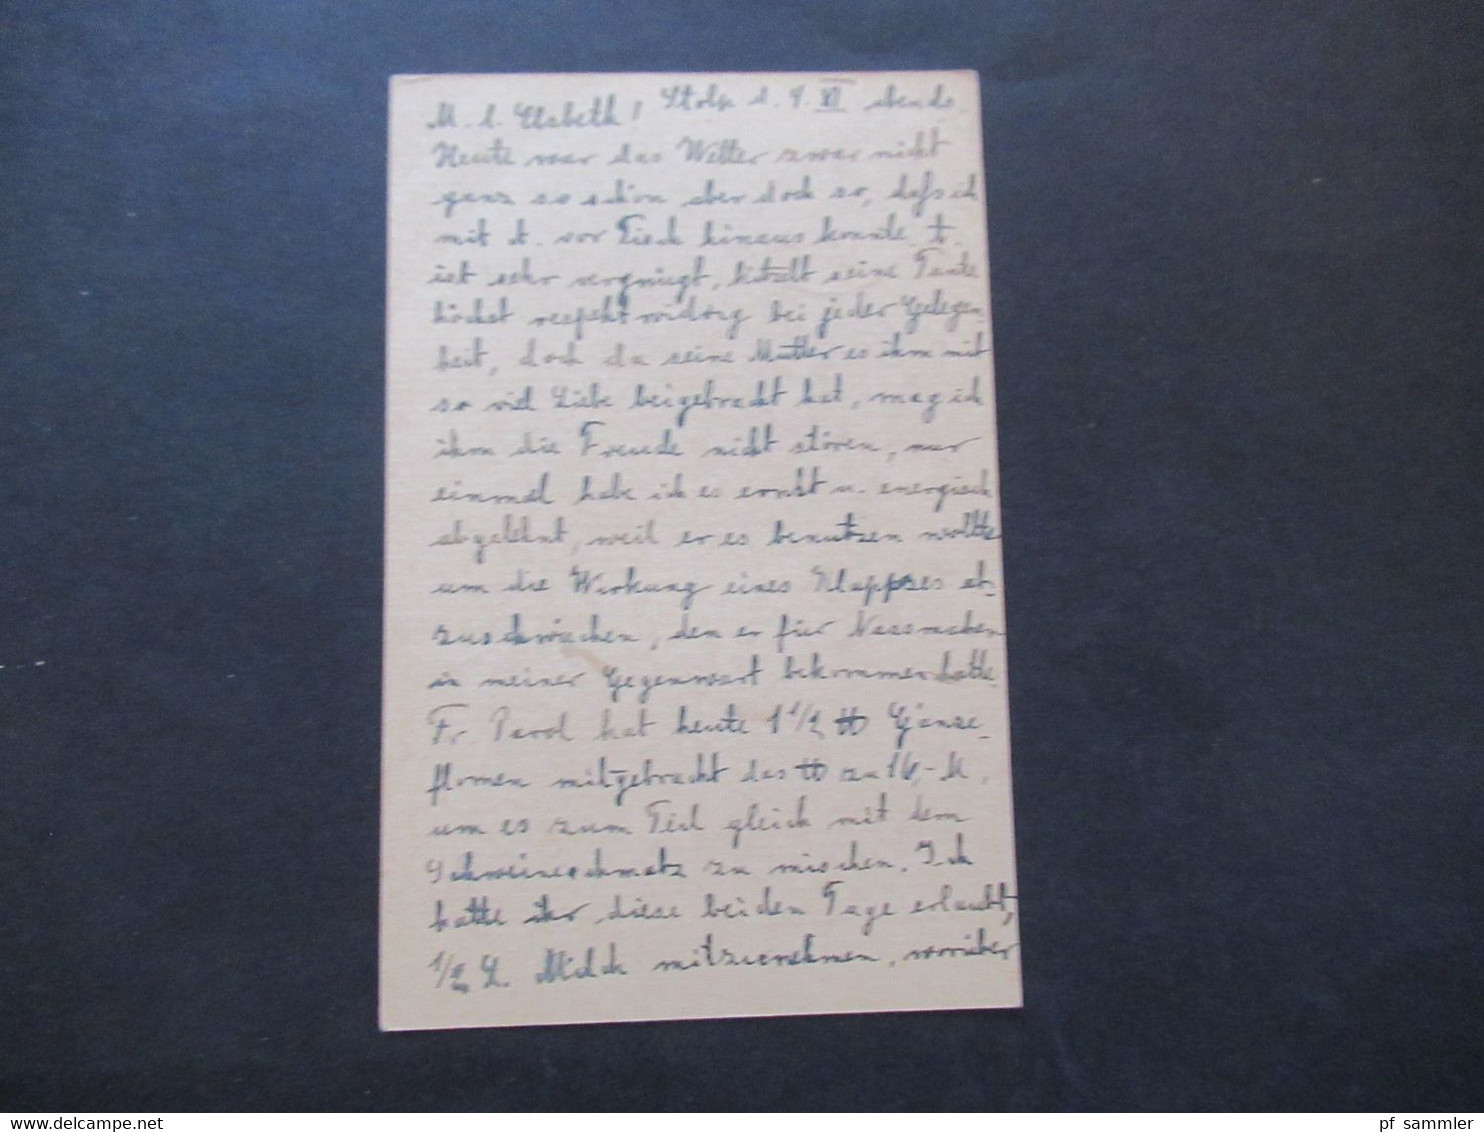 M. l. Elsbeth! Stolp d. 9. XI abends.
Heute war das Wetter zwar nicht
ganz so schön aber doch so, dass ich
mit A. vor Tisch hinaus konnte. A.
ist sehr vergnügt, kitzelt seine Tante
höchst respektwidrig bei jeder Gelegen-
heit, doch da seine Mutter es ihm mit
so viel Liebe beigebracht hat, mag ich
ihm die Freude nicht stören, nur
einmal habe ich es ernst u. energisch
abgelehnt, weil er es benutzen wollte
um die Wirkung eines Klappses ab-
zuschwächen, den er für Nassmachen
in meiner Gegenwart bekommen hatte.
Fr Parol hat heute 1 1/2 ℔ Gänse-
flomen mitgebracht das ℔ zu 16,- M.
um es zum Teil gleich mit dem
Schweineschmalz zu mischen. Ich
hatte ihr diese beiden Tage erlaubt,
1/2 L. Milch mitzunehmen, worüber
delcampe.net
pf sammler